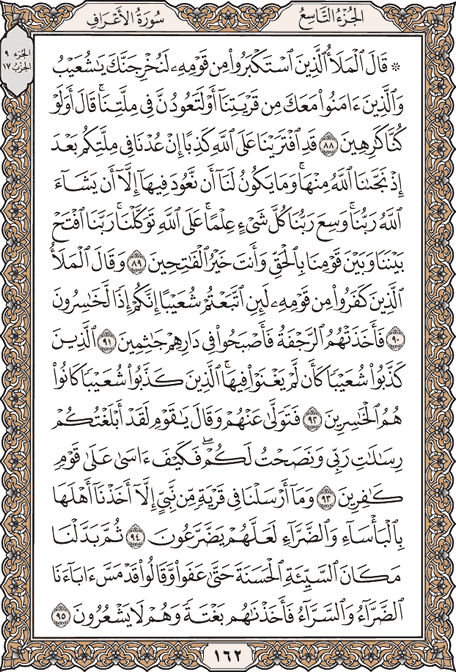 الجُزْءُ التَّاسِعُ
سُورَةُ الأَعْرَافِ
الجزء ٩
الحزب ١٧
۞ قَالَ ٱلْمَلَأُ ٱلَّذِينَ ٱسْتَكْبَرُواْ مِن قَوْمِهِۦ لَنُخْرِجَنَّكَ يَٰشُعَيْبُ
وَٱلَّذِينَ ءَامَنُواْ مَعَكَ مِن قَرْيَتِنَآ أَوْ لَتَعُودُنَّ فِى مِلَّتِنَاۚ قَالَ أَوَلَوْ
كُنَّا كَٰرِهِينَ ٨٨ قَدِ ٱفْتَرَيْنَا عَلَى ٱللَّهِ كَذِبًا إِنْ عُدْنَا فِى مِلَّتِكُم بَعْدَ
إِذْ نَجَّىٰنَا ٱللَّهُ مِنْهَاۚ وَمَا يَكُونُ لَنَآ أَن نَّعُودَ فِيهَآ إِلَّآ أَن يَشَآءَ
ٱللَّهُ رَبُّنَاۚ وَسِعَ رَبُّنَا كُلَّ شَىْءٍ عِلْمًاۚ عَلَى ٱللَّهِ تَوَكَّلْنَاۚ رَبَّنَا ٱفْتَحْ
بَيْنَنَا وَبَيْنَ قَوْمِنَا بِٱلْحَقِّ وَأَنتَ خَيْرُ ٱلْفَٰتِحِينَ ٨٩ وَقَالَ ٱلْمَلَأُ
ٱلَّذِينَ كَفَرُواْ مِن قَوْمِهِۦ لَئِنِ ٱتَّبَعْتُمْ شُعَيْبًا إِنَّكُمْ إِذًا لَّخَٰسِرُونَ
٩٠ فَأَخَذَتْهُمُ ٱلرَّجْفَةُ فَأَصْبَحُواْ فِى دَارِهِمْ جَٰثِمِينَ ٩١ ٱلَّذِينَ
كَذَّبُواْ شُعَيْبًا كَأَن لَّمْ يَغْنَوْاْ فِيهَاۚ ٱلَّذِينَ كَذَّبُواْ شُعَيْبًا كَانُواْ
هُمُ ٱلْخَٰسِرِينَ ٩٢ فَتَوَلَّىٰ عَنْهُمْ وَقَالَ يَٰقَوْمِ لَقَدْ أَبْلَغْتُكُمْ
رِسَٰلَٰتِ رَبِّى وَنَصَحْتُ لَكُمْۖ فَكَيْفَ ءَاسَىٰ عَلَىٰ قَوْمٍ
كَٰفِرِينَ ٩٣ وَمَآ أَرْسَلْنَا فِى قَرْيَةٍ مِّن نَّبِىٍّ إِلَّآ أَخَذْنَآ أَهْلَهَا
بِٱلْبَأْسَآءِ وَٱلضَّرَّآءِ لَعَلَّهُمْ يَضَّرَّعُونَ ٩٤ ثُمَّ بَدَّلْنَا
مَكَانَ ٱلسَّيِّئَةِ ٱلْحَسَنَةَ حَتَّىٰ عَفَواْ وَّقَالُواْ قَدْ مَسَّ ءَابَآءَنَا
ٱلضَّرَّآءُ وَٱلسَّرَّآءُ فَأَخَذْنَٰهُم بَغْتَةً وَهُمْ لَا يَشْعُرُونَ ٩٥
١٦٢